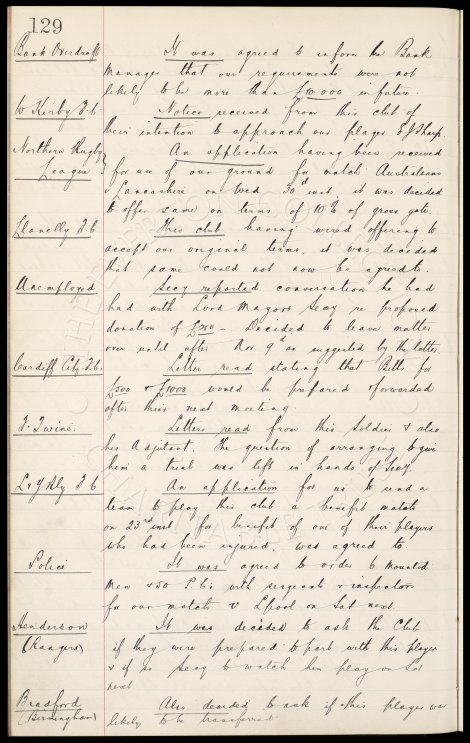 129
Bank Overdraft It was agreed to inform the Bank
Manager that our requirements were not
likely to be more than £10.000 in future.
W Kirby F.C. Notice received from this club of
their intention to approach our player J Sharp.
Northern Rugby An application having been received
League } for use of our ground for match Australians
v Lancashire on Wed 30th inst, it was decided
to offer same on terms of 10% of gross gate.
Llanelly F.C This club having wired offering to
accept our original terms, it was decided
that same could not now be agreed to.
Unemployed Secy reported conversation he had
had with Lord Mayors Secy re proposed
donation of £500 - Decided to leave matter
over until after Nov 9th as suggested by the latter.
Cardiff City F.C. Letter read stating that Bills for
£500 & £1000 would be prepared & forwarded
after their next meeting.
F. Twine. Letters read from this Soldier & also
his Adjutant. The question of arranging to give
him a trial was left in hands of Secy.
L & Y Rly F C An application for us to send a
team to play this club a benefit match
on 23rd inst for benefit of one of their players
who had been injured, was agreed to.
Police It was agreed to order 6 mounted
men & 50 P.C.s with sergeants & inspectors
for our match v L'pool on Sat next.
Henderson It was decided to ask the Club
(Rangers) if they were prepared to part with this player
& if so Secy to watch him play on Sat
next
Bradford Also decided to ask if this player was
(Birmingham) likely to be transferred.